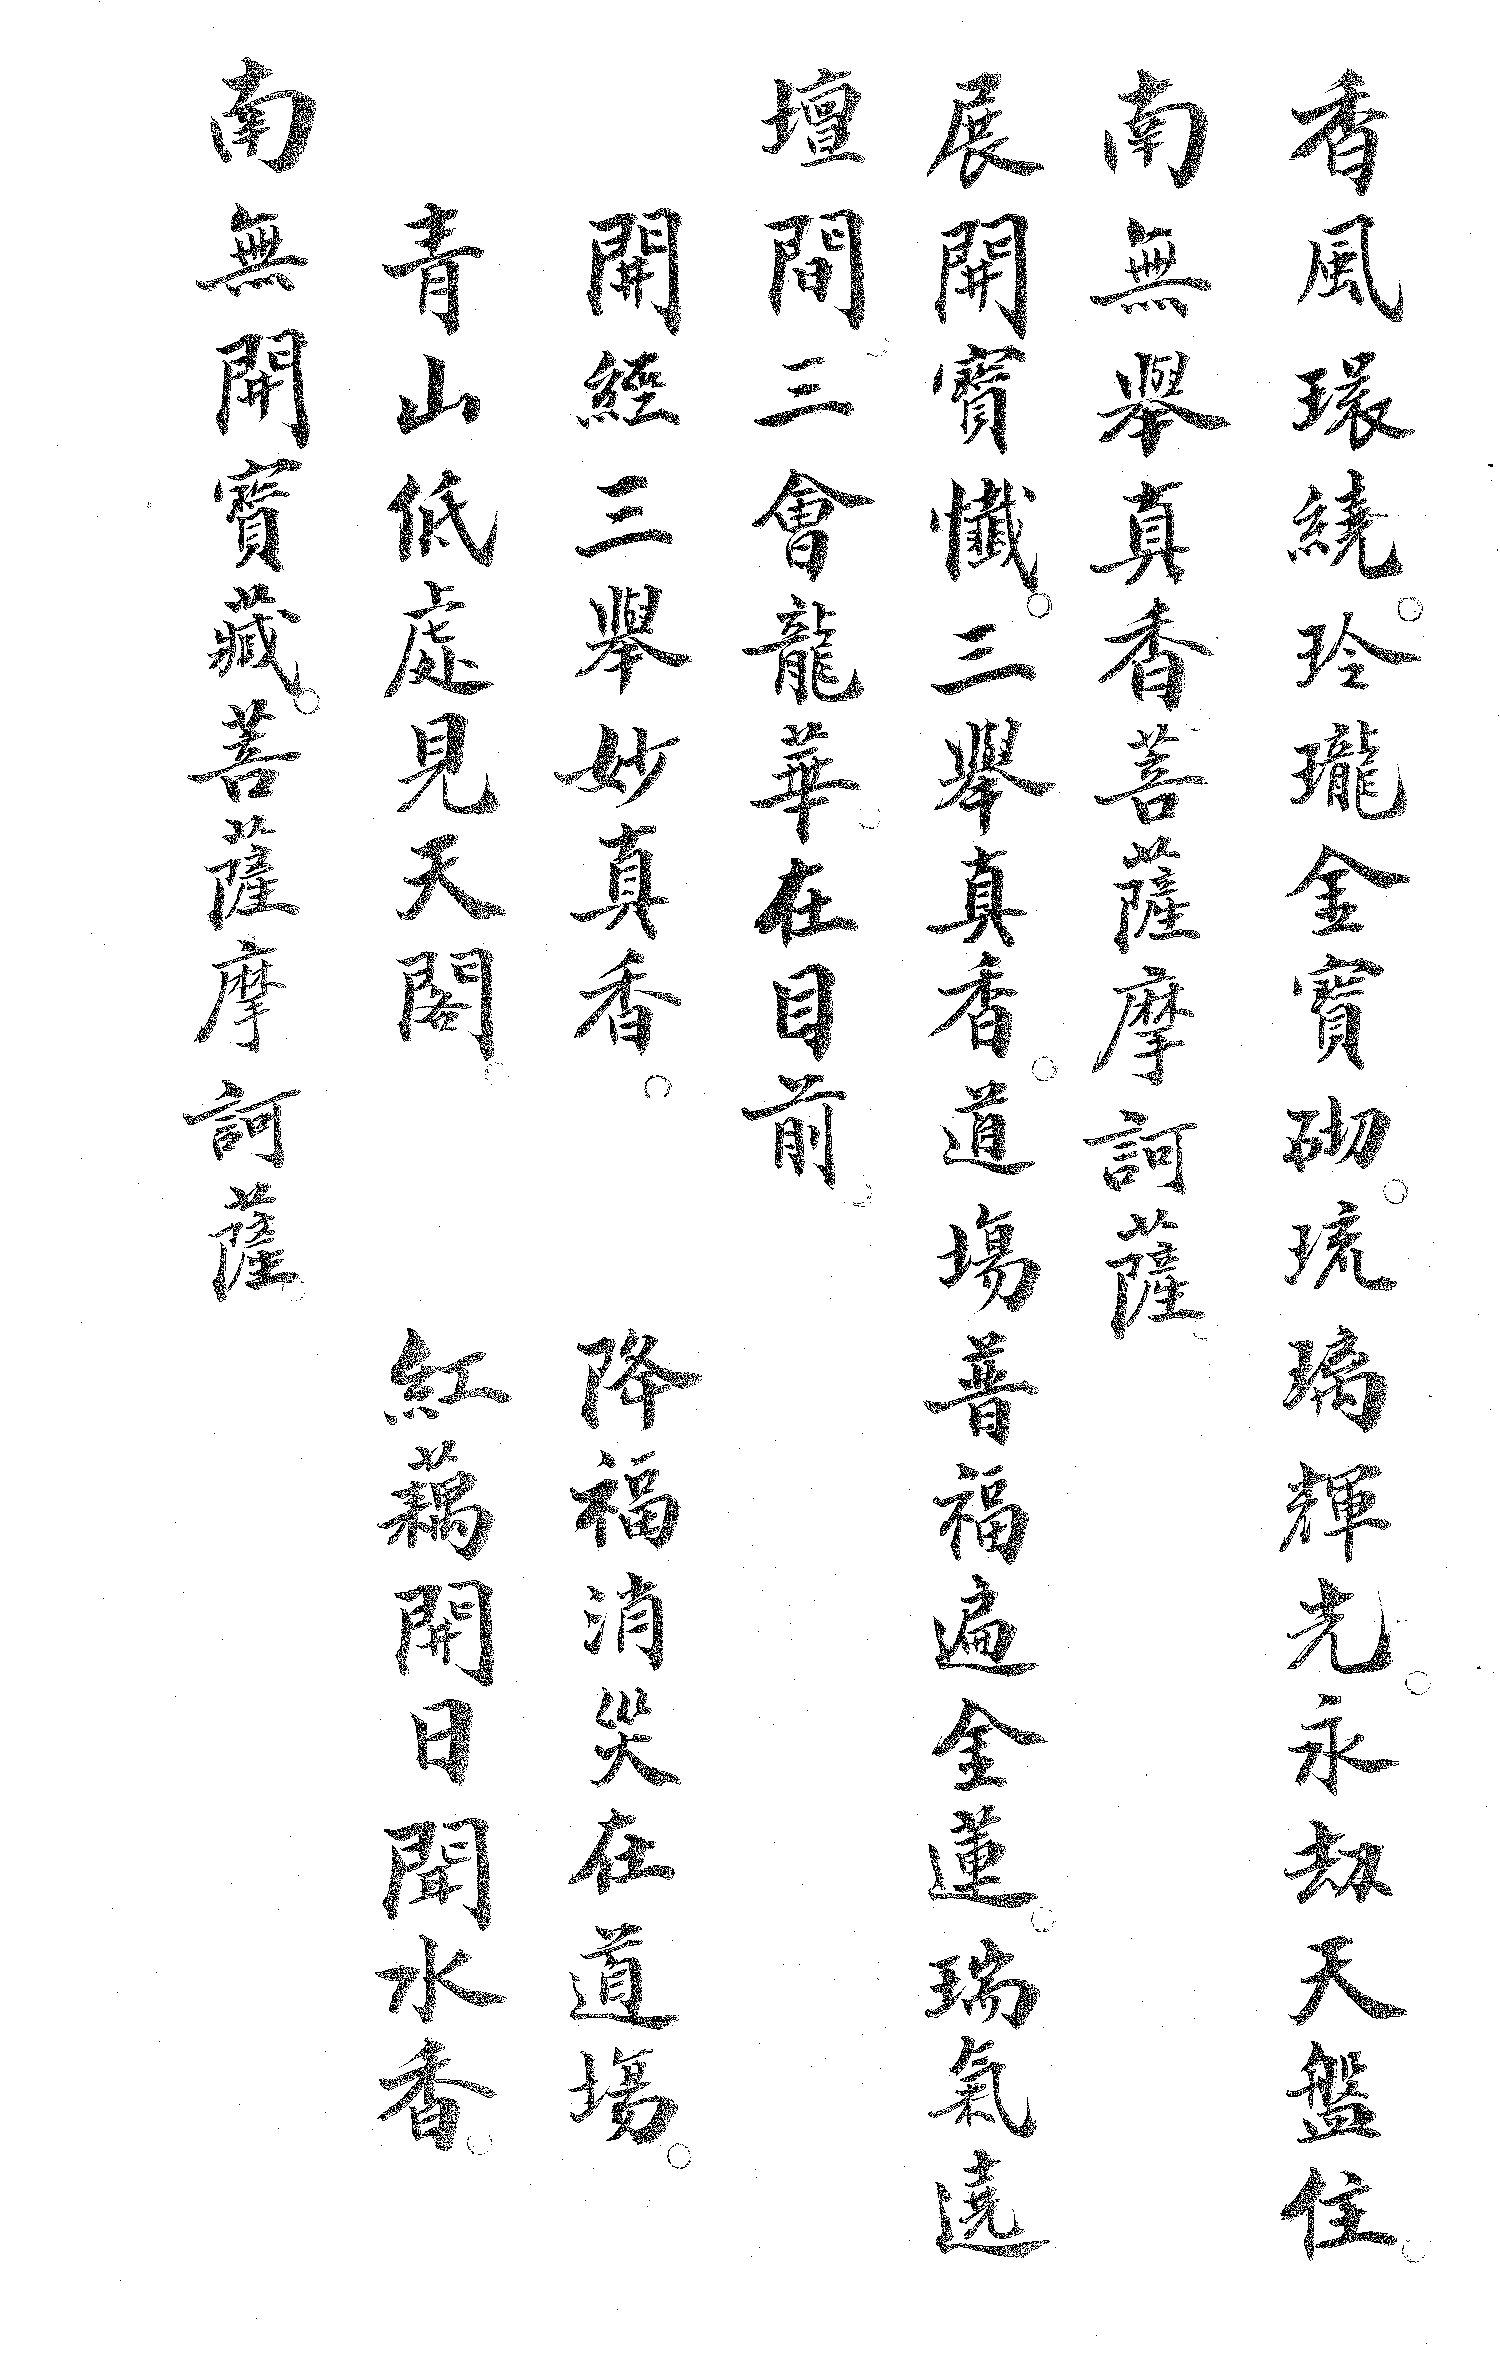 香風環繞。玲瓏金寶砌。琉璃輝光。永劫天盤住。
南無舉真香菩薩摩訶薩。
展開寶懺。三舉真香。道場普福遍金蓮。瑞氣遶
壇間。三會龍華。在目前。
開經三舉妙真香。　降福消災在道場。
青山低處見天閣。　紅藕開日聞水香。
南無開寶藏。菩薩摩訶薩。